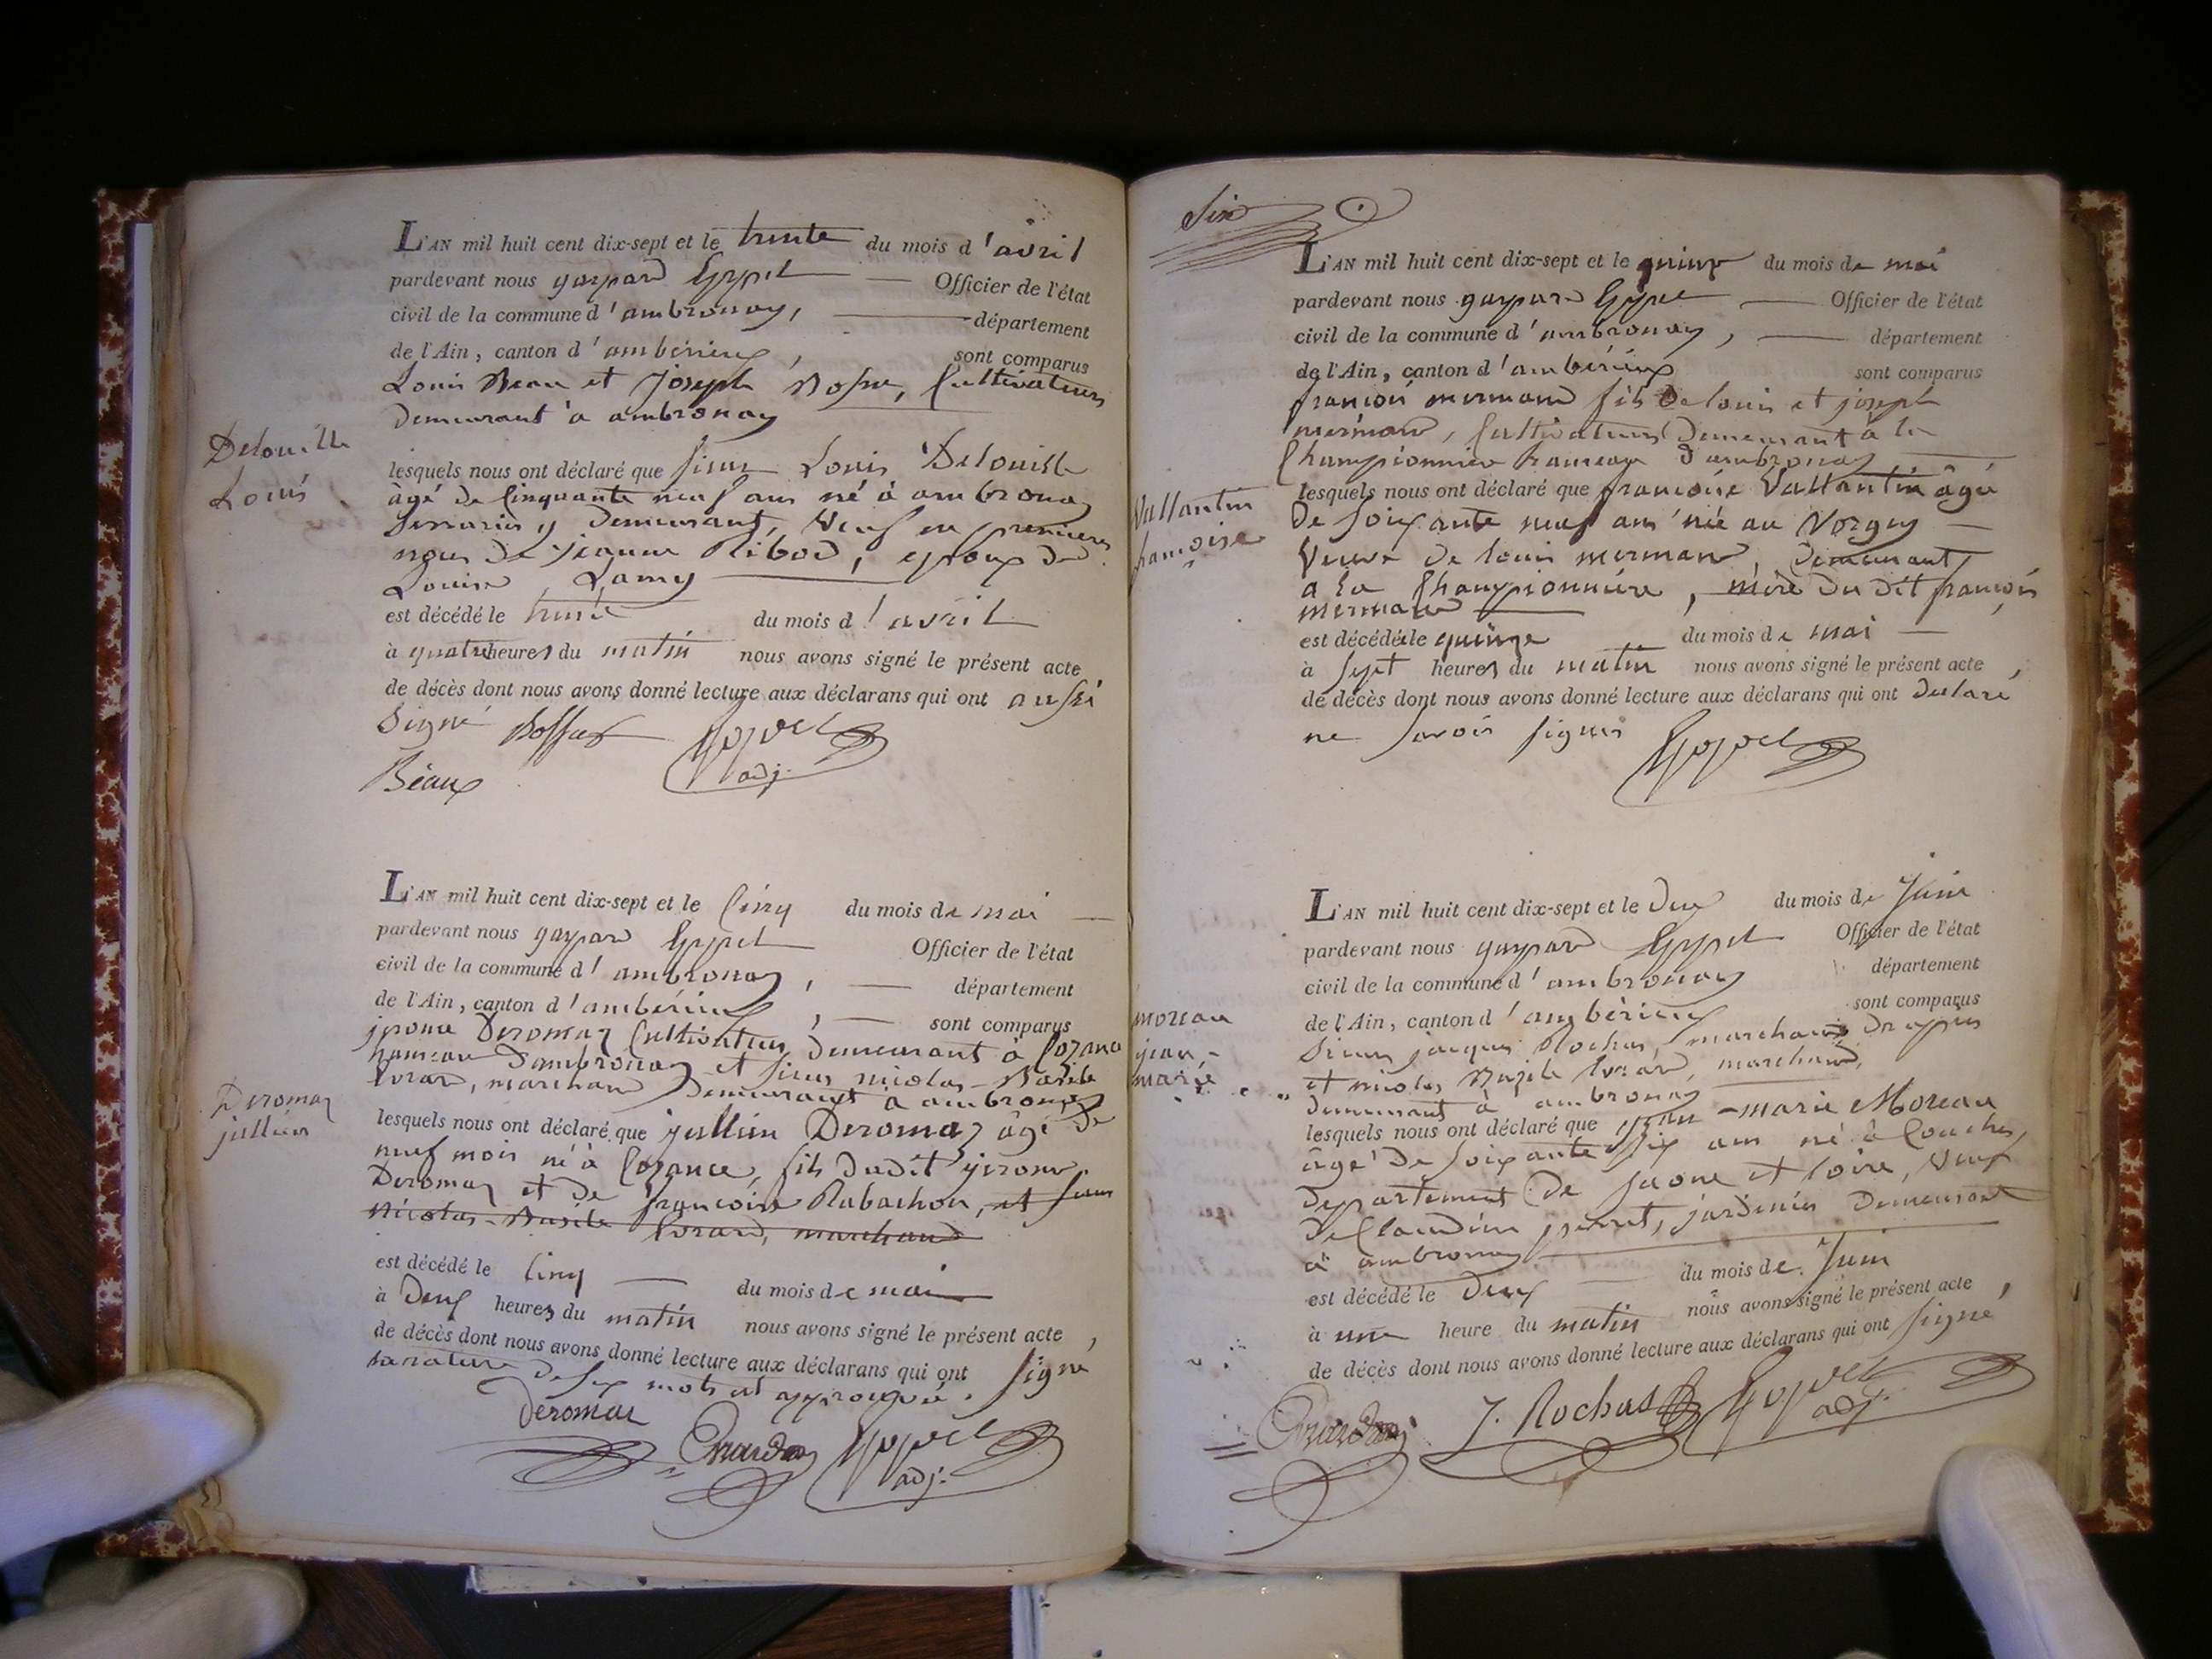 L'AN mil huit cent dix-sept et le trente du mois d'avril
pardevant nous gaspard Goppet Officier de l'état
civil de la commune d'ambronay, département
de l'Ain, canton d'ambérieux, sont comparus
Louis Beau et joseph Bossu, Cultivateurs
demeurant à ambronay
Delouille
Louis
lesquels nous ont déclaré que sieur Louis Delouille
âgé de Cinquante neuf ans né à ambronay
serrurier y demeurant, veuf en premieres
noces de jeanne Ribod, epoux de
Louise Lamy
est décédé le trente du mois d'avril
à quatre heures du matin nous avons signé le présent acte
de décès dont nous avons donné lecture aux déclarans qui ont aussi
signé
Beaux adj.
L'AN mil huit cent dix-sept et le Cinq du mois de mai
pardevant nous gaspard Goppet Officier de l'état
civil de la commune d'ambronay, département
de l'Ain, canton d'ambérieux, sont comparus
jerome Deromaz Cultivateur demeurant à Cozance
hameau d'ambronay et sieur nicolas-Basile
marchand demeurant à ambronay
Deromaz
jullien
lesquels nous ont déclaré que jullien Deromaz âgé de
neuf mois né à Cozance, fils dudit jerome
Deromaz et de françoise Rabachon, et sieur
nicolas-Basile marchand
est décédé le Cinq du mois de mai
à Deux heures du matin nous avons signé le présent acte,
de décès dont nous avons donné lecture aux déclarans qui ont signé
la rature de six mots est approuvée.
Deromaz
adj.
Six
L'AN mil huit cent dix-sept et le quinze du mois de mai
pardevant nous gaspard Goppet Officier de l'état
civil de la commune d'ambronay, département
de l'Ain, canton d'ambérieux sont comparus
françois mermand fils de louis et joseph
mermand, Cultivateurs demeurant à la
Championnière hameau d'ambronay
Vallantin
françoise
lesquels nous ont déclaré que françoise Vallantin âgée
de soixante neuf ans née au Vorgey
Veuve de louis mermand, demeurant
a la Championnière, mère du dit françois
mermand
est décédée le quinze du mois de mai
à sept heures du matin nous avons signé le présent acte,
de décès dont nous avons donné lecture aux déclarans qui ont declaré
ne savoir signer Goppet
L'AN mil huit cent dix-sept et le Deux du mois de Juin
pardevant nous gaspard Goppet Officier de l'état
civil de la commune d'ambronay département
de l'Ain, canton d'ambérieux sont comparus
moreau
jean-
marie
sieurs jacques Rochas, marchand drapier
et nicolas Bazile marchand,
demeurant à ambronay
lesquels nous ont déclaré que jean-marie Moreau
âgé de soixante six ans né à Couches,
departement de saone et loire, veuf
de Claudine perret, jardinier demeurant
à ambronay
est décédé le Deux du mois de Juin
à une heure du matin nous avons signé le présent acte,
de décès dont nous avons donné lecture aux déclarans qui ont signé
J. Rochas Goppet
adj.